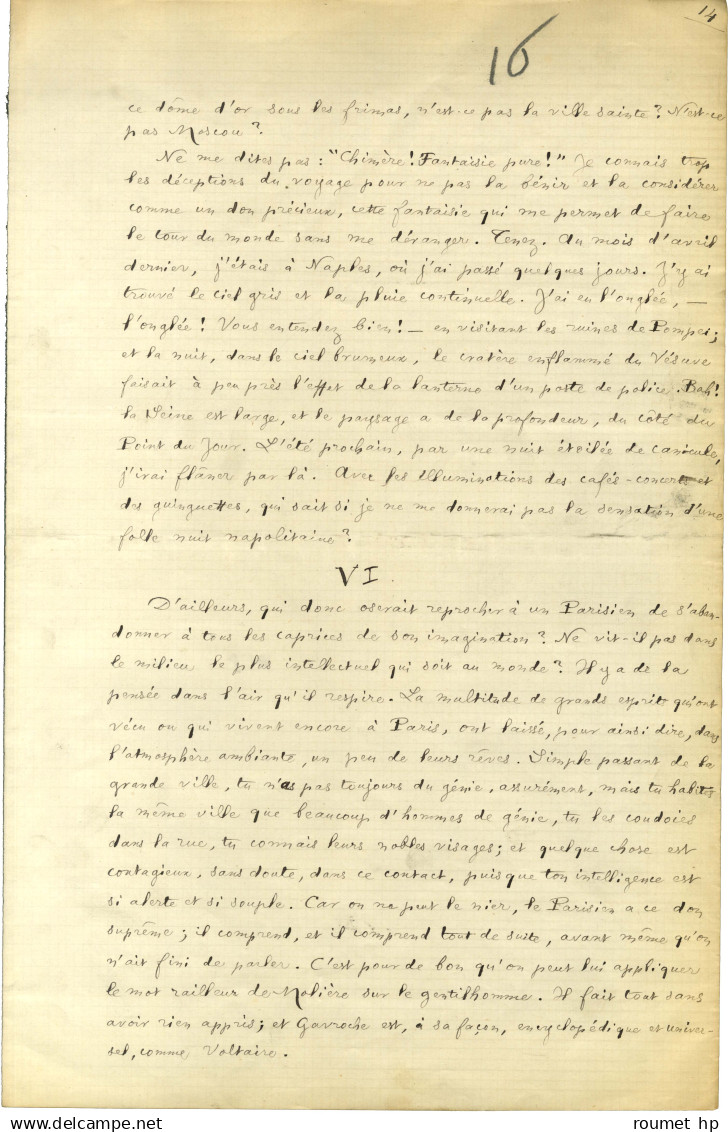 14
16
ce dôme d'or sous les frimas, n'est-ce pas la ville sainte? N'est-ce
pas Moscou?
Ne me dites pas: "Chimère! Fantaisie pure!" Je connais trop
les déceptions du voyage pour ne pas la bénir et la considérer
comme un don précieux, cette fantaisie qui me permet de faire
le tour du monde sans me déranger. Tenez. Au mois d'avril
dernier, j'étais à Naples, où j'ai passé quelques jours. J'y ai
trouvé le ciel gris et la pluie continuelle. J'ai eu l'onglée, —
l'onglée! Vous entendez bien! — en visitant les ruines de Pompeï;
et la nuit, dans le ciel brumeux, le cratère enflammé du Vésuve
faisait à peu près l'effet de la lanterne d'un poste de police. Bah!
la Seine est large, et le paysage a de la profondeur, du côté du
Point du Jour. L'été prochain, par une nuit étoilée de canicule,
j'irai flâner par là. Avec les illuminations des cafés-concert et
des guinguettes, qui sait si je ne me donnerai pas la sensation d'une
folle nuit napolitaine?
VI.
D'ailleurs, qui donc oserait reprocher à un Parisien de s'aban-
donner à tous les caprices de son imagination? Ne vit-il pas dans
le milieu le plus intellectuel qui soit au monde? Il y a de la
pensée dans l'air qu'il respire. La multitude de grands esprits qui ont
vécu ou qui vivent encore à Paris, ont laissé, pour ainsi dire, dans
l'atmosphère ambiante, un peu de leurs rêves. Simple passant de la
grande ville, tu n'as pas toujours du génie, assurément, mais tu habites
la même ville que beaucoup d'hommes de génie, tu les coudoies
dans la rue, tu connais leurs nobles visages; et quelque chose est
contagieux, sans doute, dans ce contact, puisque ton intelligence est
si alerte et si souple. Car on ne peut le nier, le Parisien a ce don
suprême; il comprend, et il comprend tout de suite, avant même qu'on
n'ait fini de parler. C'est pour de bon qu'on peut lui appliquer
le mot railleur de Molière sur le gentilhomme. Il fait tout sans
avoir rien appris; et Gavroche est, à sa façon, encyclopédique et univer-
sel, comme Voltaire.
roumet hp